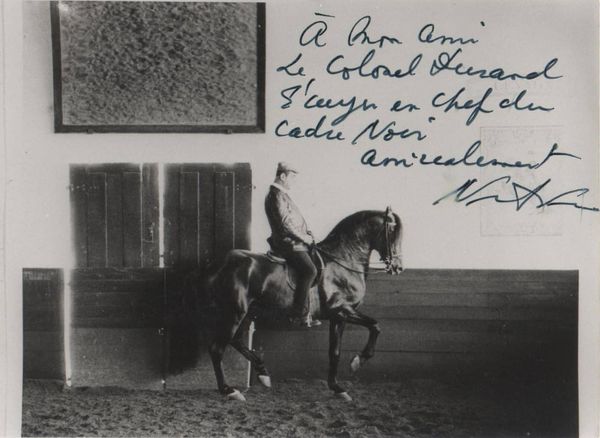 À Mon Ami
Le Colonel Durand
Ecuyer en chef du
Cadre Noir
amicalement